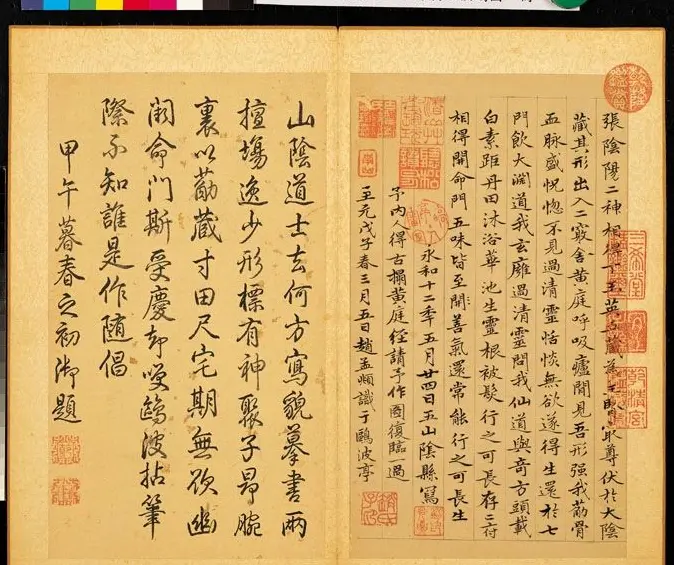 張陰陽二神相得下玉英五藏為主腎最尊伏於大陰
藏其形出入二竅舍黃庭呼吸廬間見吾形强我筋骨
血脉盛恍惚不見過清靈恬惔無欲遂得生還於七
門飲大淵道我玄癰過清靈問我仙道與奇方頭載
白素距丹田沐浴華池生靈根被髮行之可長存二府
相得開命門五味皆至開善氣還常能行之可長生
永和十二年五月廿四日五山陰縣寫
予內人得古搨黃庭經請予作圖復臨一過
至元戊子春三月五日趙孟頫識于鷗波亭
山陰道士去何方寫貌摹書兩
擅場逸少形標有神聚子昂腕
裏以筋藏寸田尺宅期無欲幽
闕命門斯受慶却笑鷗波拈筆
際不知誰是作隨倡
甲午暮春之初御題